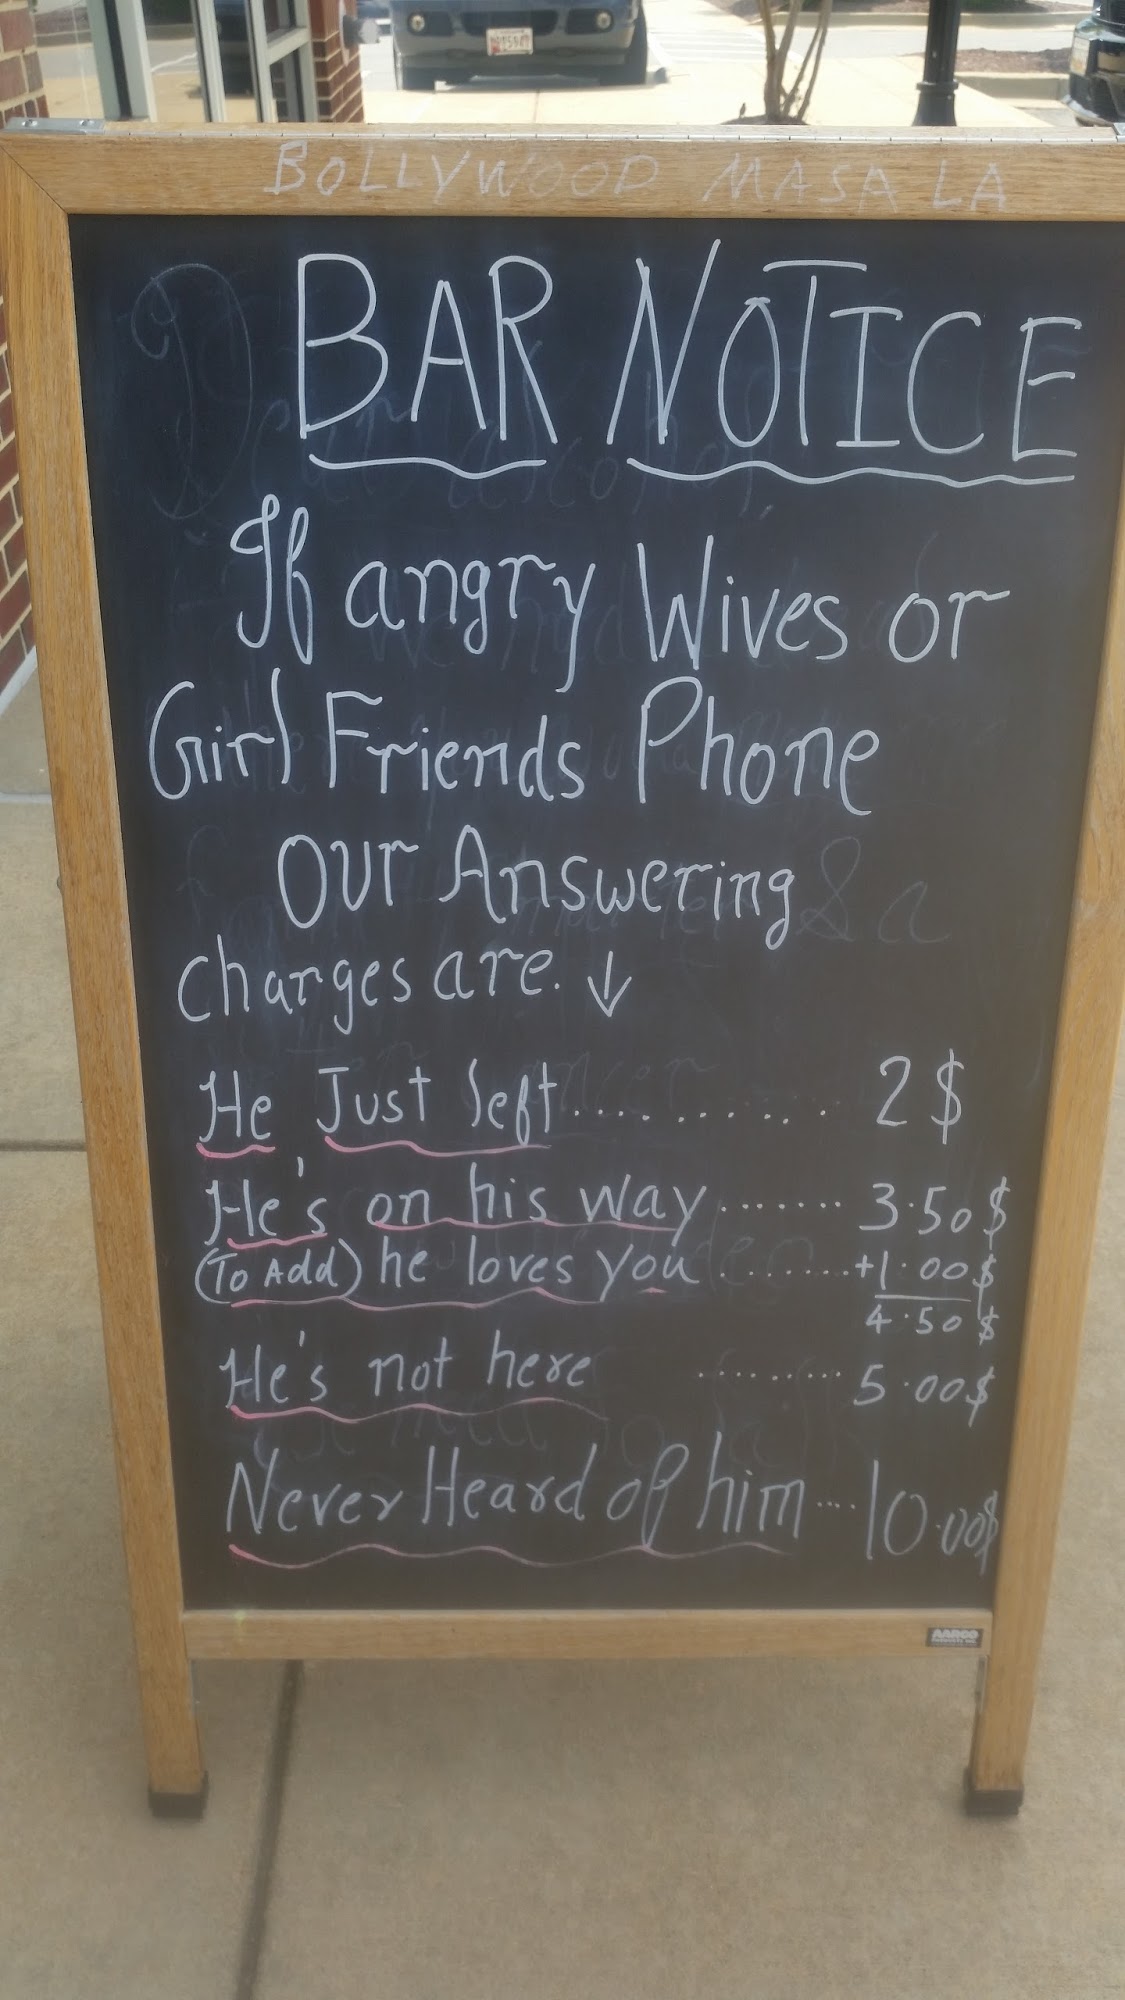 BOLLYWOOD MASALA
BAR NOTICE
If angry Wives or
Girl Friends Phone
Our Answering
charges are. ↓
He Just left.......... 2$
He's on his way ....... 3.50$
(To Add) he loves you ......... +1.00$
4.50$
He's not here ......... 5.00$
Never Heard of him .... 10.00$
AARCO